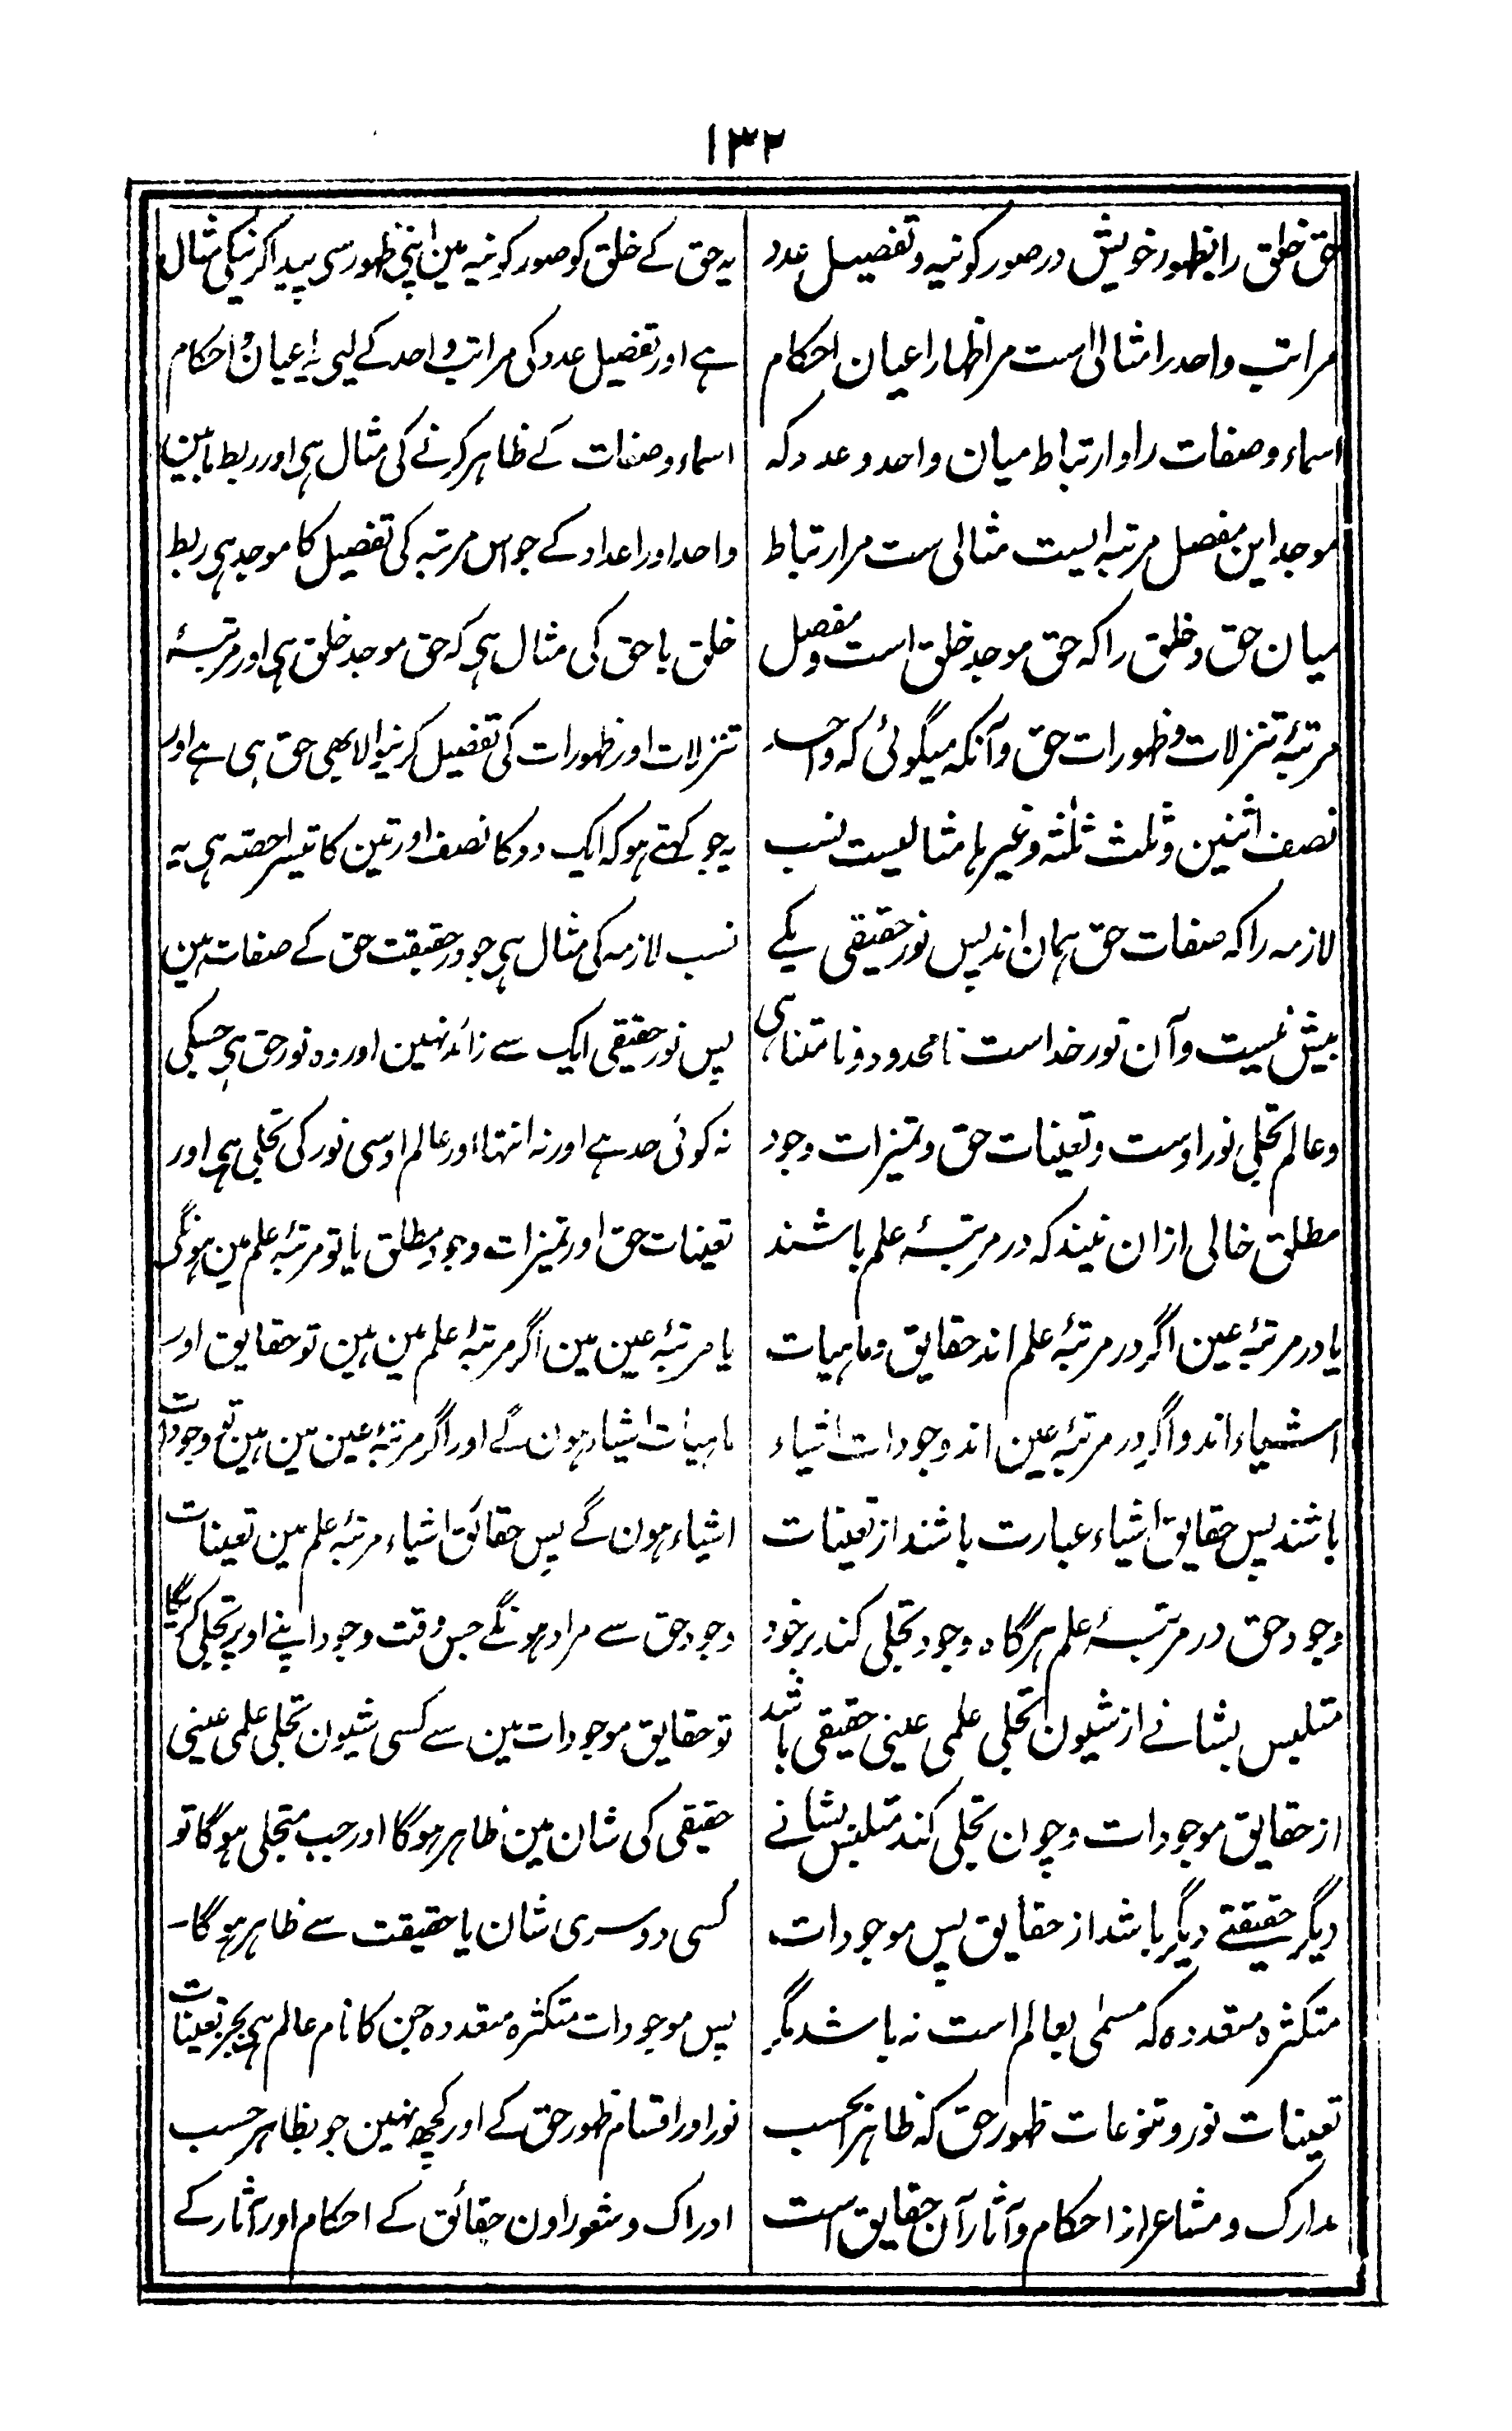 ۱۳۲
حق خلق را بظهور خویش در صور کونیه و تفصیل عدد
مراتب واحد را مثالی است مر اظهار اعیان احکام
اسماء و صفات را و ارتباط میان واحد و عدد که
موجد این مفصل مرتبہ ایست مثالی ست مر ارتباط
میان حق و خلق را که حق موجد خلق است و مفصل
مرتبۂ تنزلات و ظهورات حق و آنکه میگوئی که واحد
نصف اثنین و ثلث ثلٰثه و غیر ہا مثالیست نسب
لازمه را که صفات حق ہمان اند پس نور حقیقی یکے
بیش نیست و آن نور خداست نا محدود و نا متناہی
و عالم تجلی نور اوست و تعینات حق و تمیزات وجود
مطلق خالی ازان نیند که در مرتبۂ علم باشند
یا در مرتبۂ عین اگر در مرتبۂ علم اند حقایق و ماہیات
اشیاء اند و اگر در مرتبۂ عین اند وجودات اشیاء
باشند پس حقایق اشیاء عبارت باشند از تعینات
وجود حق در مرتبۂ علم ہرگاہ وجود تجلی کند بر خود
متلبس بشانے از شیون تجلی علمی عینی حقیقی باشد
از حقایق موجودات و چون تجلی کند متلبس بشانے
دیگر حقیقتے دیگر باشد از حقایق پس موجودات
متکثرہ متعددہ که مسمٰی بعالم است نه باشد مگر
تعینات نور و تنوعات ظهور حق که ظاہرا بحسب
مدارک و مشاعر از احکام و آثار آن حقایق است
یہ حق کے خلق کو صور کونیہ مین اپنی ظہور سی پیدا کرنیکی مثال
ہے اور تفصیل عدد کی مراتب واحد کے لیی یہ اعیان و احکام
اسماء و صفات کے ظاہر کرنے کی مثال ہی اور ربط مابین
واحد اور اعداد کے جو اس مرتبہ کی تفصیل کا موجد ہی ربط
خلق با حق کی مثال ہی کہ حق موجد خلق ہی اور مرتبۂ
تنزلات اور ظہورات کی تفصیل کرنیوالا بھی حق ہی ہے اور
یہ جو کہتے ہو کہ ایک دو کا نصف اور تین کا تیسرا حصّہ ہی یہ
نسب لازمہ کی مثال ہی جو در حقیقت حق کے صفات ہین
پس نور حقیقی ایک سے زائد نہین اور وہ نور حق ہی جسکی
نہ کوئی حد ہے اور نہ انتہا اور عالم اوسی نور کی تجلی ہی اور
تعینات حق اور تمیزات وجود مطلق یا تو مرتبۂ علم مین ہونگی
یا مرتبۂ عین مین اگر مرتبۂ علم مین ہین تو حقایق اور
ماہیات اشیاء ہون گے اور اگر مرتبۂ عین مین ہین تو وجودات
اشیاء ہون گے پس حقائق اشیاء مرتبۂ علم مین تعینات
وجود حق سے مراد ہونگے جس وقت وجود اپنے اوپر تجلی کریگا
تو حقایق موجودات مین سے کسی شیون تجلی علمی عینی
حقیقی کی شان مین ظاہر ہوگا اور جب متجلی ہوگا تو
کسی دوسری شان یا حقیقت سے ظاہر ہوگا۔
پس موجودات متکثرہ متعددہ جن کا نام عالم ہی بجز تعینات
نور اور اقسام ظہور حق کے اور کچھ نہین جو بظاہر حسب
ادراک و شعور اون حقائق کے احکام اور آثار کے